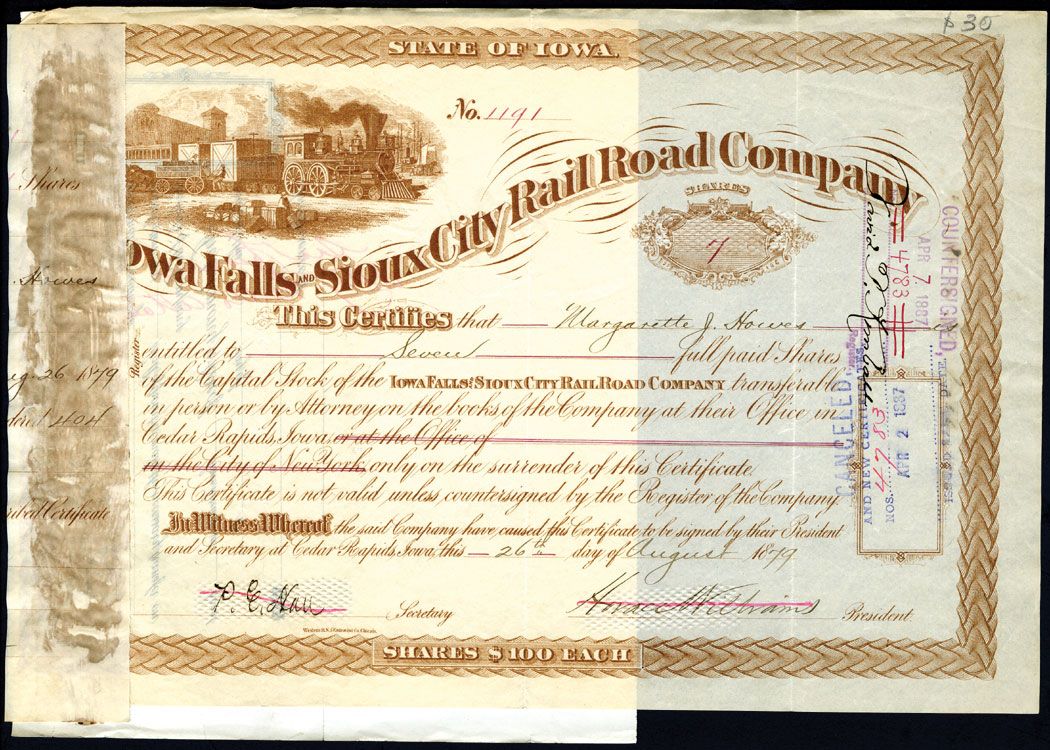 $30
STATE OF IOWA.
No. 1191
Iowa Falls AND Sioux City Rail Road Company
SHARES
7
This Certifies that Margarette J. Howes is
entitled to Seven full paid Shares
of the Capital Stock of the IOWA FALLS and SIOUX CITY RAIL ROAD COMPANY transferable
in person or by Attorney on the books of the Company at their Office in
Cedar Rapids, Iowa, or at the Office of
in the City of New York, only on the surrender of this Certificate.
This Certificate is not valid unless countersigned by the Register of the Company.
In Witness Whereof, the said Company have caused this Certificate to be signed by their President
and Secretary at Cedar Rapids, Iowa, this 26th day of August 1879
P. E. Hall Secretary
Horace Williams President.
Western B.N. & Engraving Co. Chicago.
SHARES $100 EACH
Shares
Howes
Aug. 26 1879
404
Certificate
Register
COUNTERSIGNED,
APR 7 1887
4783
David P. Kimball
CANCELED,
AND NEW CERTIFICATES,
NOS. 4783
APR 2 1887